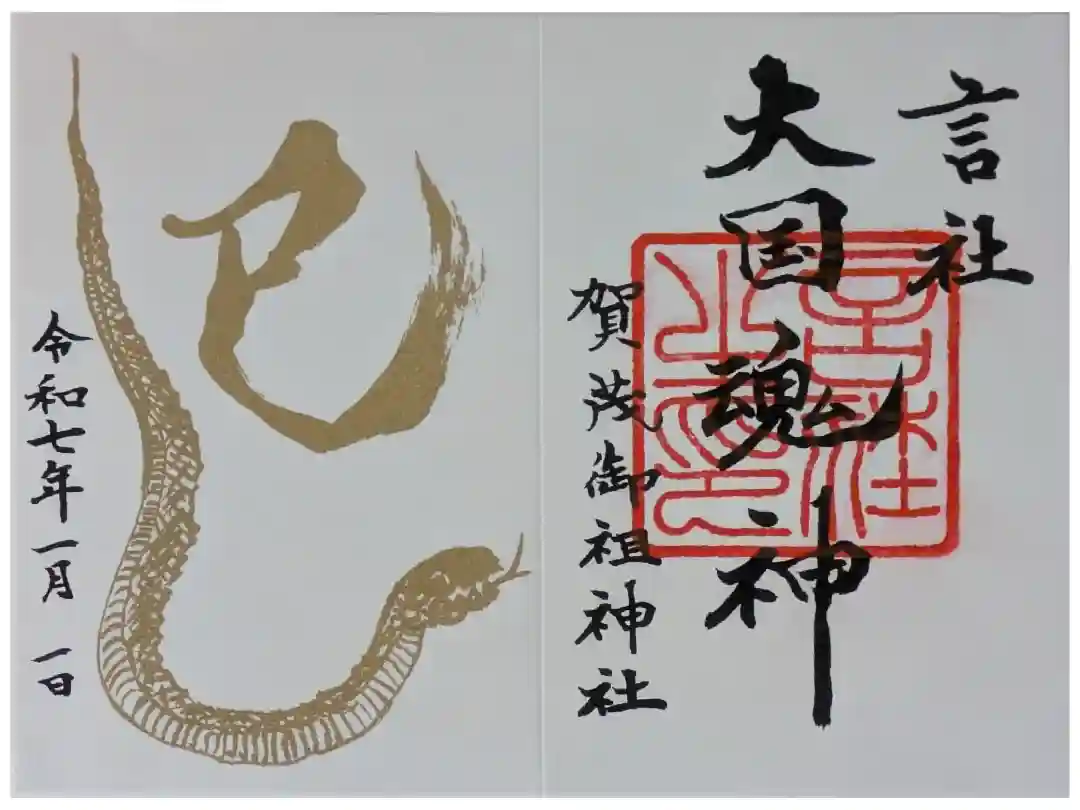 言社
大国魂神
賀茂御祖神社
言社之印
巳
令和七年一月一日